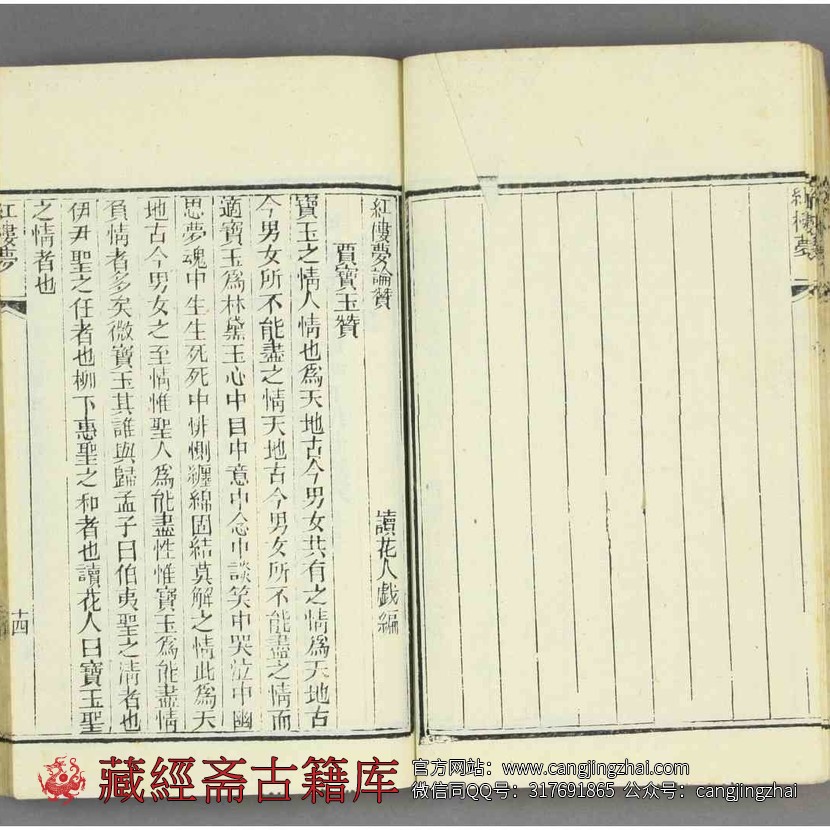 紅樓夢
紅樓夢論贊
讀花人戲編
賈寶玉贊
寶玉之情人情也爲天地古今男女共有之情爲天地古
今男女所不能盡之情天地古今男女所不能盡之情而
適寶玉爲林黛玉心中目中意中念中談笑中哭泣中幽
思夢魂中生生死死中悱惻纏綿固結莫解之情此爲天
地古今男女之至情惟聖人爲能盡性惟寶玉爲能盡情
負情者多矣微寶玉其誰與歸孟子曰伯夷聖之清者也
伊尹聖之任者也柳下惠聖之和者也讀花人曰寶玉聖
之情者也
紅樓夢
十四
藏經斋古籍库
官方网站：www.cangjingzhai.com
微信同QQ号：317691865 公众号：cangjingzhai